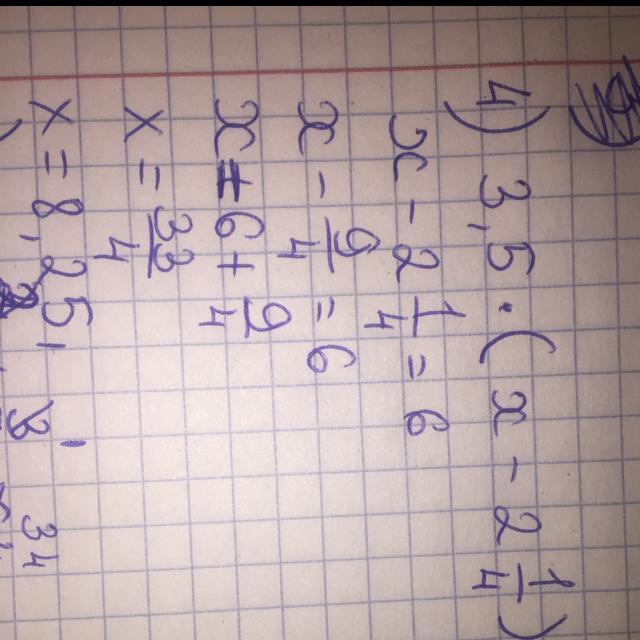 1) 3,5 · (x - 2 1/4)
x - 2 1/4 = 6
x - 9/4 = 6
x = 6 + 9/4
x = 33/4
x = 8,25